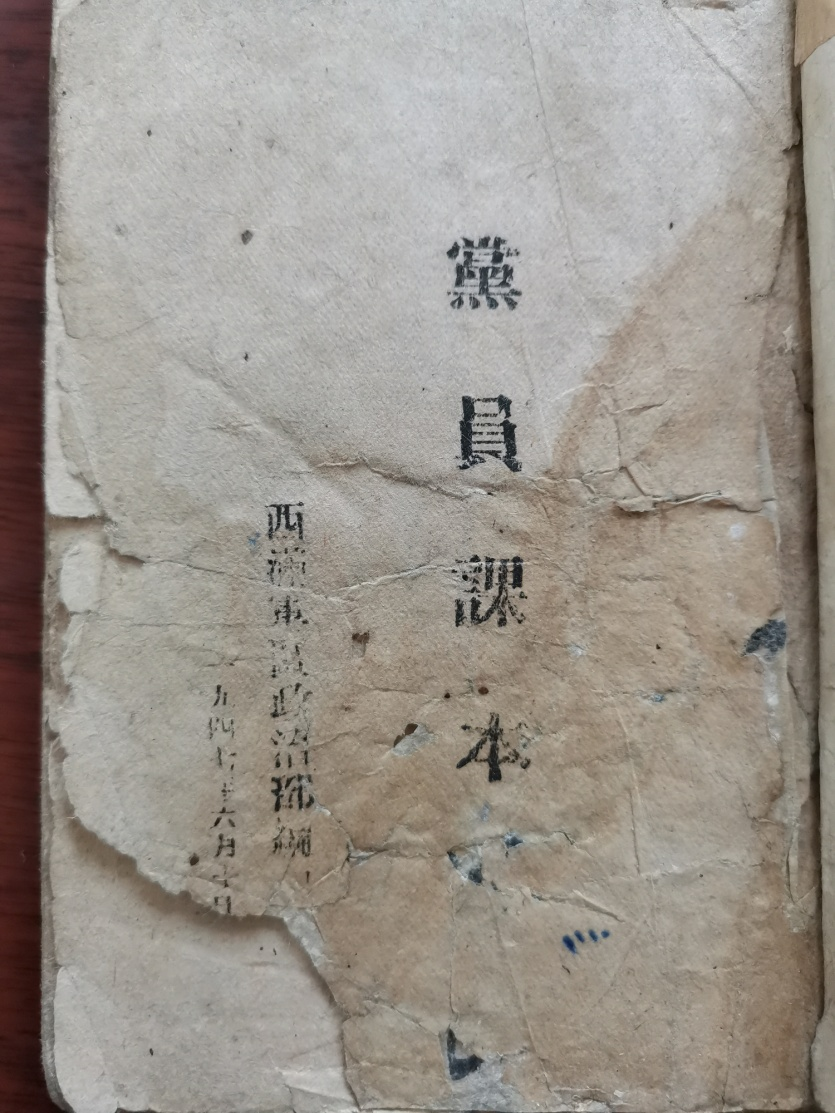 黨員課本
西滿軍區政治部編
一九四七年六月十日